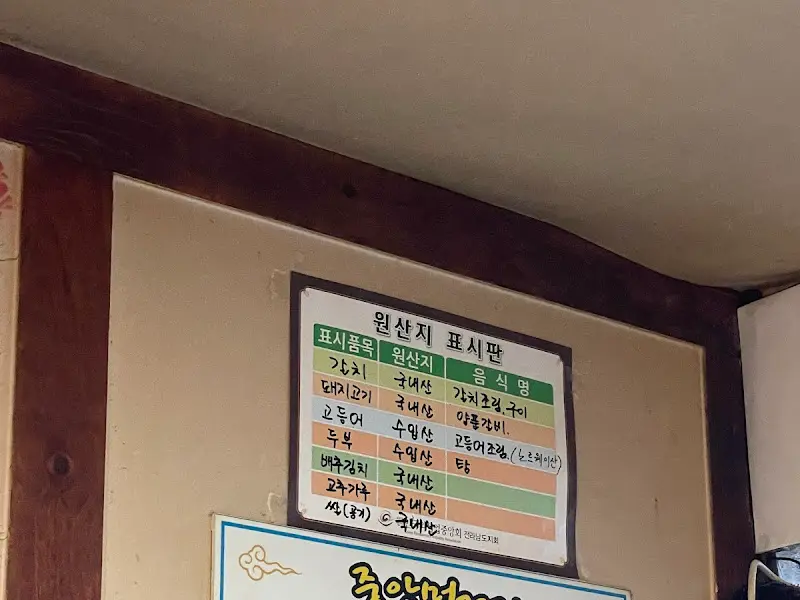 원산지 표시판
표시품목 원산지 음식명
갈치 국내산 갈치조림.구이
돼지고기 국내산 양푼갈비.
고등어 수입산 고등어조림.(노르웨이산)
두부 수입산 탕
배추김치 국내산
고추가루 국내산
쌀(공기) 국내산
업중앙회 전라남도지회